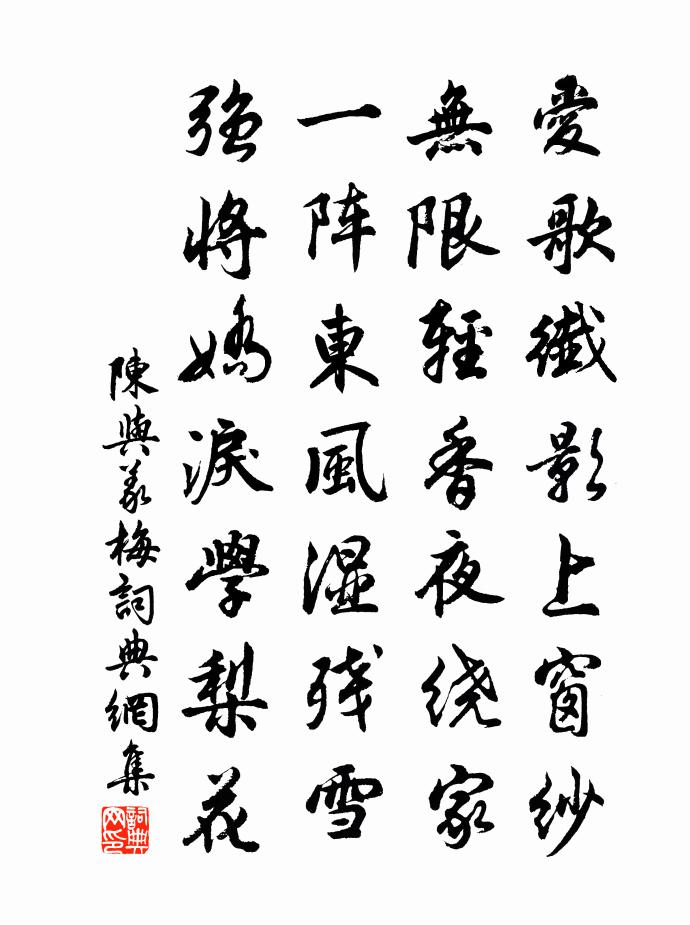 愛歌纖影上窗紗
無限輕香夜绕家
一阵東風湿残雪
強將嬌淚學梨花
陳與義梅詞典網集
詞典网印